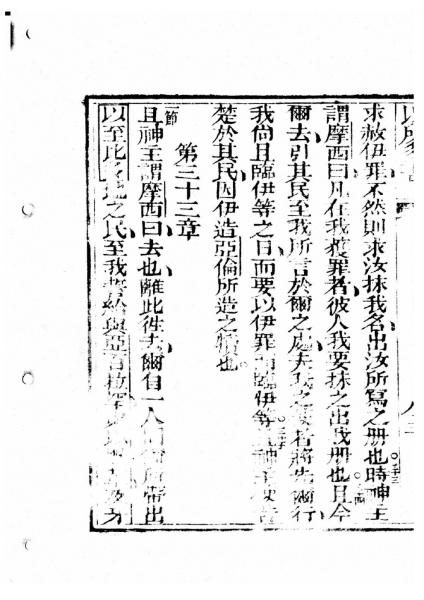 求赦伊罪不然則求汝抹我名出汝所寫之册也三三時神主
謂摩西曰凡在我獲罪者彼人我要抹之出我册也三四且今
爾去引其民至我所言於爾之處夫我之使者將先爾行
我尚且臨伊等之日而要以伊罪而臨伊等三五神主使苦
楚於其民因伊造亞倫所造之犢也
第三十三章
一節且神主謂摩西曰去也離此徃去爾自一人所帶出
以至此地之民至我誓給與亞百拉